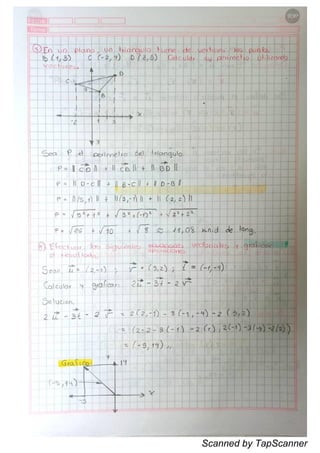 En un plano, un triangulo tiene de vertices los puntos
B (1,3) C (-2,4) D (3,5) Calcular su perimetro utilizando
vectores.
D
C
B
x
-2 1 3
Sea P el perimetro del triangulo
P = || CD || + || CB || + || BD ||
P = || D-C || + || B-C || + || D-B ||
P = ||(5,1)|| + ||(3,-1)|| + || (2,2) ||
P = √5²+1² + √3²+(-1)² + √2²+2²
P = √26 + √10 + √8 ≈ 11,08 unid de long.
Efectuar las siguientes operaciones vectoriales y graficar
el resultado.
Sean u = (2,-1) ; v = (5,2) ; t = (-1,-4)
Calcular y graficar: 2u - 3t - 2v
Solución
2u - 3t - 2v = 2(2,-1) - 3(-1,-4) - 2(5,2)
= (-3,14)
Grafico
14
(-3,14)
x
-3
Scanned by TapScanner